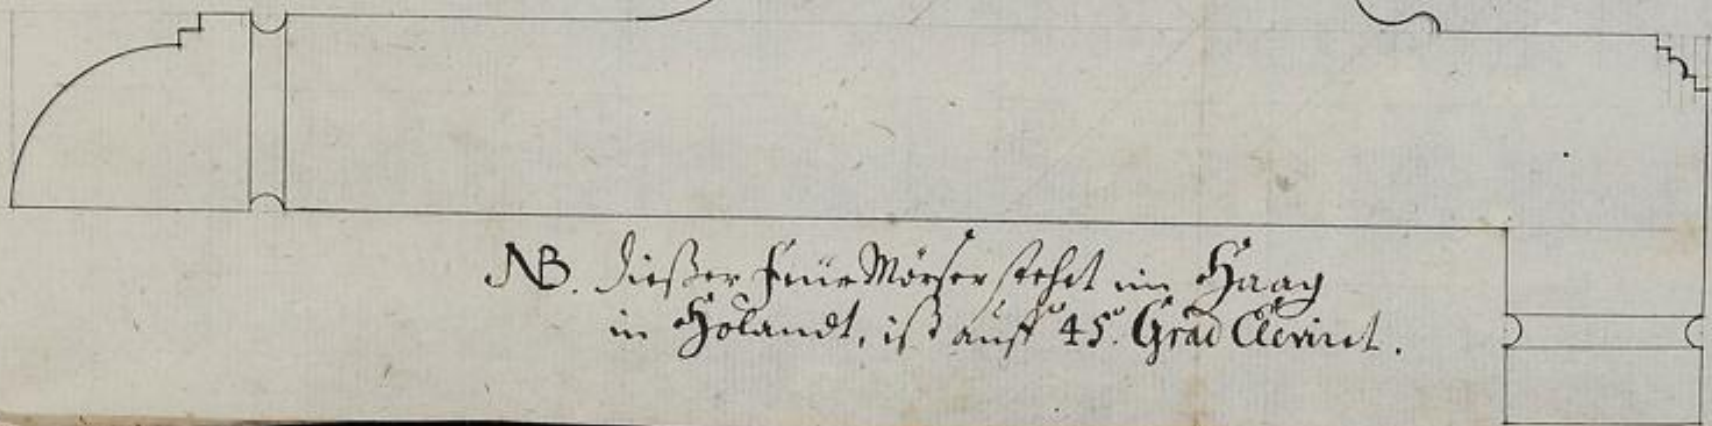 NB. dießer Feür Mörser stehet im Haag
in Holandt, ist auff 45° Grad Eleviret.